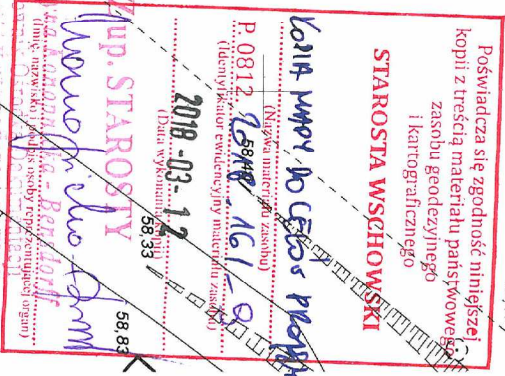 Poświadcza się zgodność niniejszej
kopii z treścią materiału państwowego
zasobu geodezyjnego
i kartograficznego
STAROSTA WSCHOWSKI
KOPIA MAPY DO CELÓW
(Nazwa materiału zasobu)
P.0812.2018.161
58.48
(Identyfikator ewidencyjny materiału zasobu)
2018-03-12
(Data wykonania kopii)
58.33
up. STAROSTY
58.83
(Imię, nazwisko i podpis osoby reprezentującej organ)